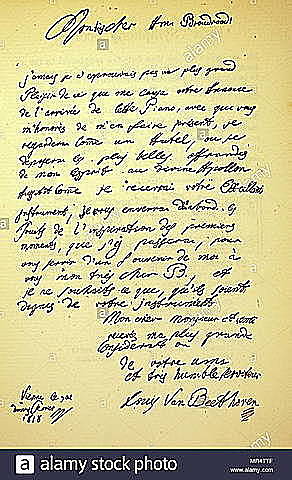 Mon très cher Ami Broadwood!
jamais je n'eprouvais pas un plus grand
Plaisir de ce que me causa votre Annonce
de l'arrivée de cette Piano, avec que vous
m'honorès de m'en faire présent, je
regarderai Come un Autel, ou je
deposerai les plus belles offrandes
de mon Esprit au divine Apollon
Aussitôt Come je recevrai votre Excellent
instrument, je vous enverrai d'abord les
Fruits de l'inspiration des premiers
moments, que j'y passerai, pour
vous servir d'un Souvenir de moi à
vous mon très cher B., et
je ne souhaits ce que, qu'ils soient
dignes de votre instrument
Mon cher Monsieur et ami
recevés ma plus grande
Consideration
de votre ami
et très humble serviteur
Louis Van Beethoven
Vienne le
du mois Fevrier
1818
alamy stock photo
www.alamy.com